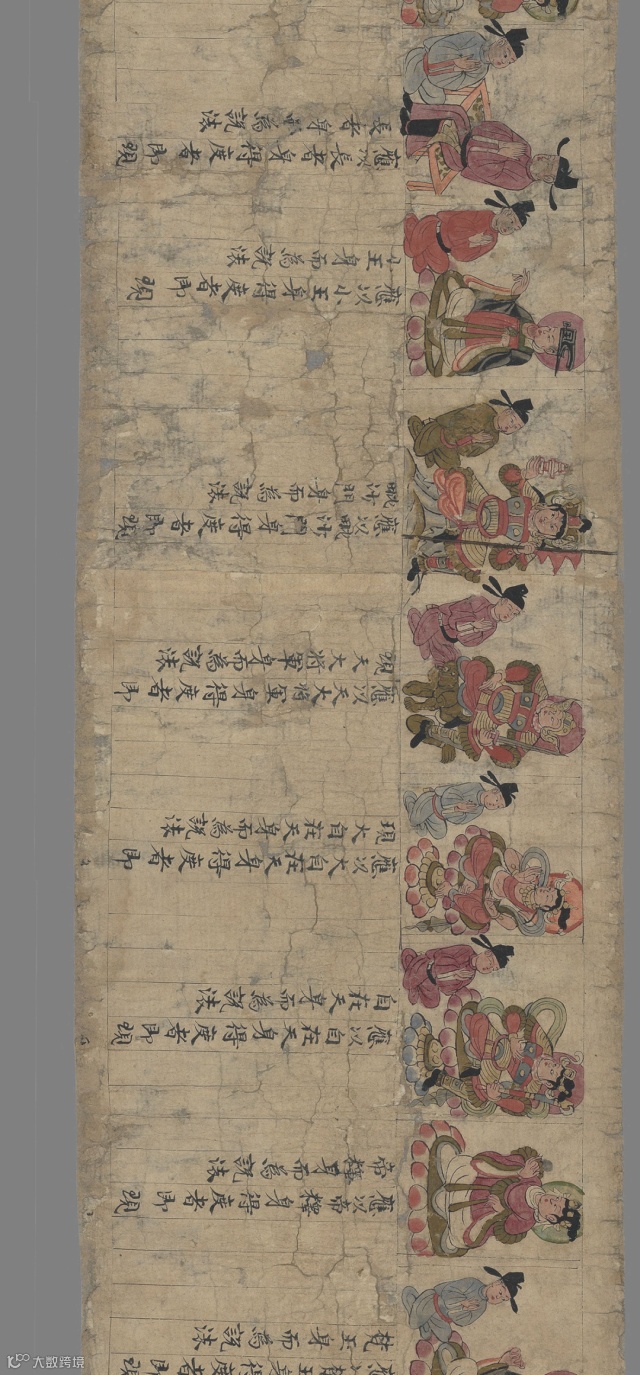 應以梵王身得度者即現
梵王身而為說法
應以帝釋身得度者即現
帝釋身而為說法
應以自在天身得度者即現
自在天身而為說法
應以大自在天身得度者即
現大自在天身而為說法
應以天大將軍身得度者即
現天大將軍身而為說法
應以毗沙門身得度者即現
毗沙門身而為說法
應以小王身得度者即現
小王身而為說法
應以長者身得度者即現
長者身而為說法
大数跨境